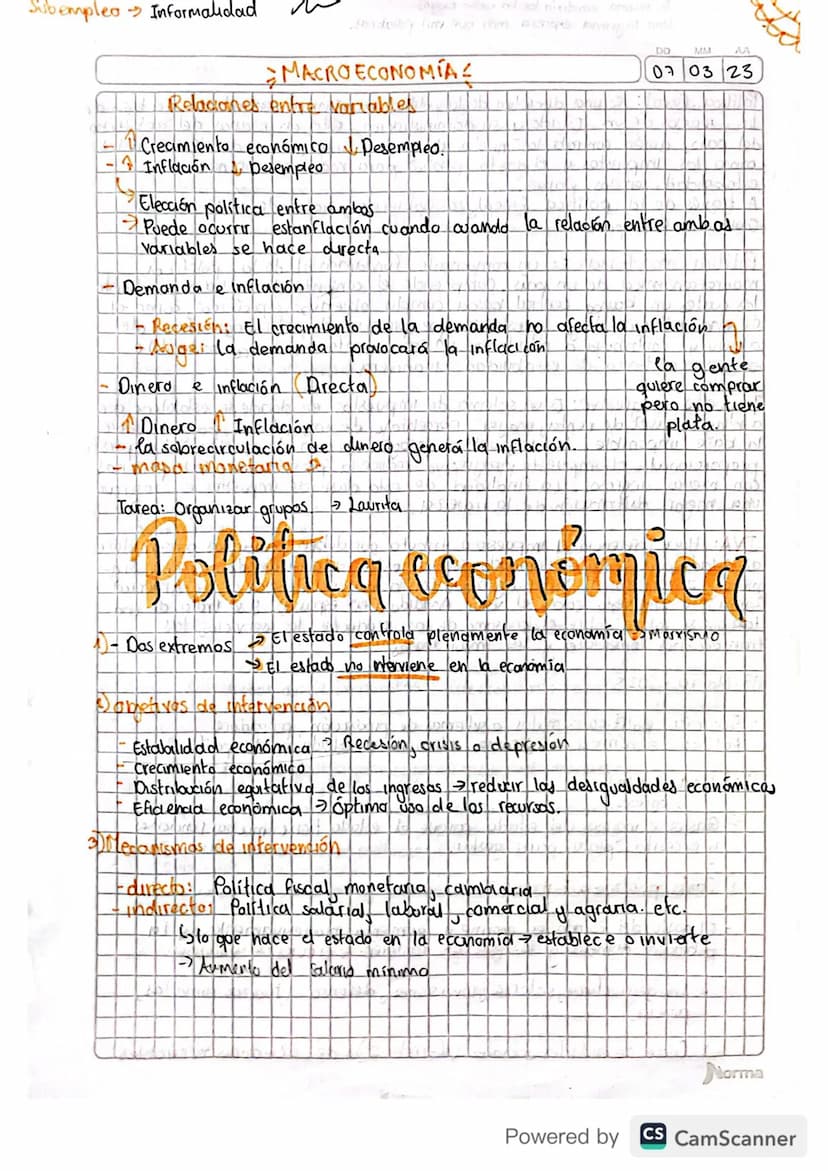 Subempleo → Informalidad
DD MM AA
MACROECONOMÍA 07 03 23
Relaciones entre variables
- ↑ Crecimiento económico ↓ Desempleo.
- ↑ Inflación ↓ Desempleo
↳ Elección política entre ambas
→ Puede ocurrir estanflación cuando cuando la relación entre ambas
variables se hace directa
- Demanda e inflación
- Recesión: El crecimiento de la demanda no afecta la inflación
- Auge: la demanda provocará la inflación
la gente
quiere comprar
pero no tiene
plata.
- Dinero e inflación (Directa)
↑ Dinero ↑ Inflación
- la sobrecirculación de dinero generá la inflación.
- masa monetaria
Tarea: Organizar grupos → Laurita
Política económica
1)- Dos extremos → El estado controla plenamente la economía → Marxismo
→ El estado no interviene en la economía
2) Objetivos de intervención
- Estabilidad económica → Recesión, crisis o depresión
- Crecimiento económico
- Distribución equitativa de los ingresos → reducir las desigualdades económicas
- Eficiencia económica → óptimo uso de los recursos.
3) Mecanismos de intervención
- directo: Política fiscal, monetaria, cambiaria
- indirecto: Política salarial, laboral, comercial y agraria. etc.
↳ lo que hace el estado en la economía → establece o invierte
→ Aumento del salario mínimo
Norma
Powered by CS CamScanner